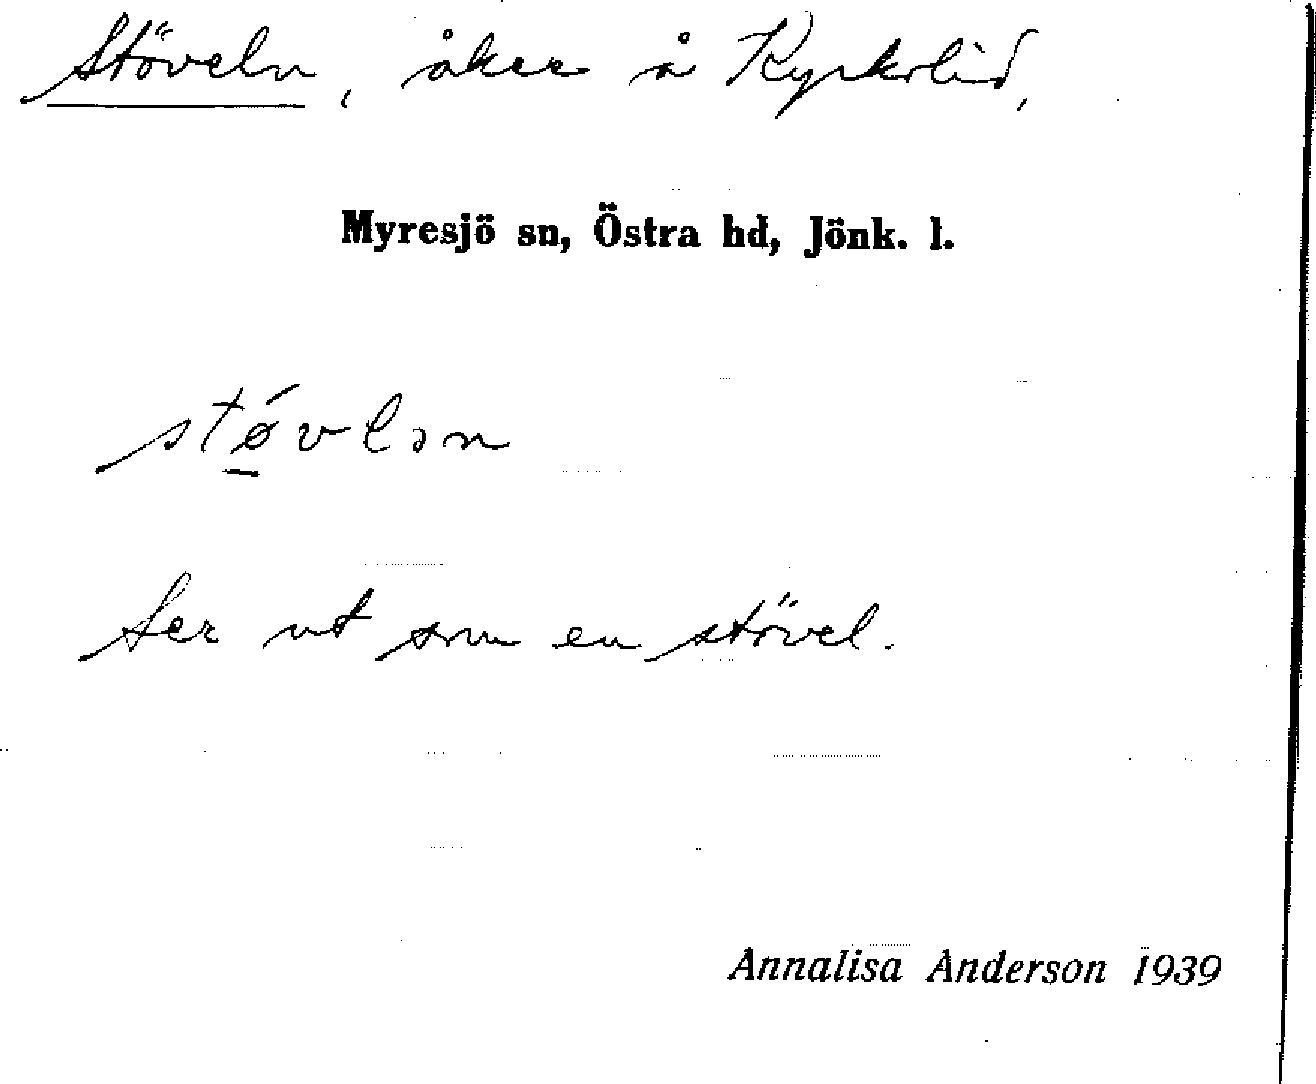 Stöveln, åker å Kyrkolid,
Myresjö sn, Östra hd, Jönk. l.
stǿvlən
Ser ut som en stövel.
Annalisa Anderson 1939